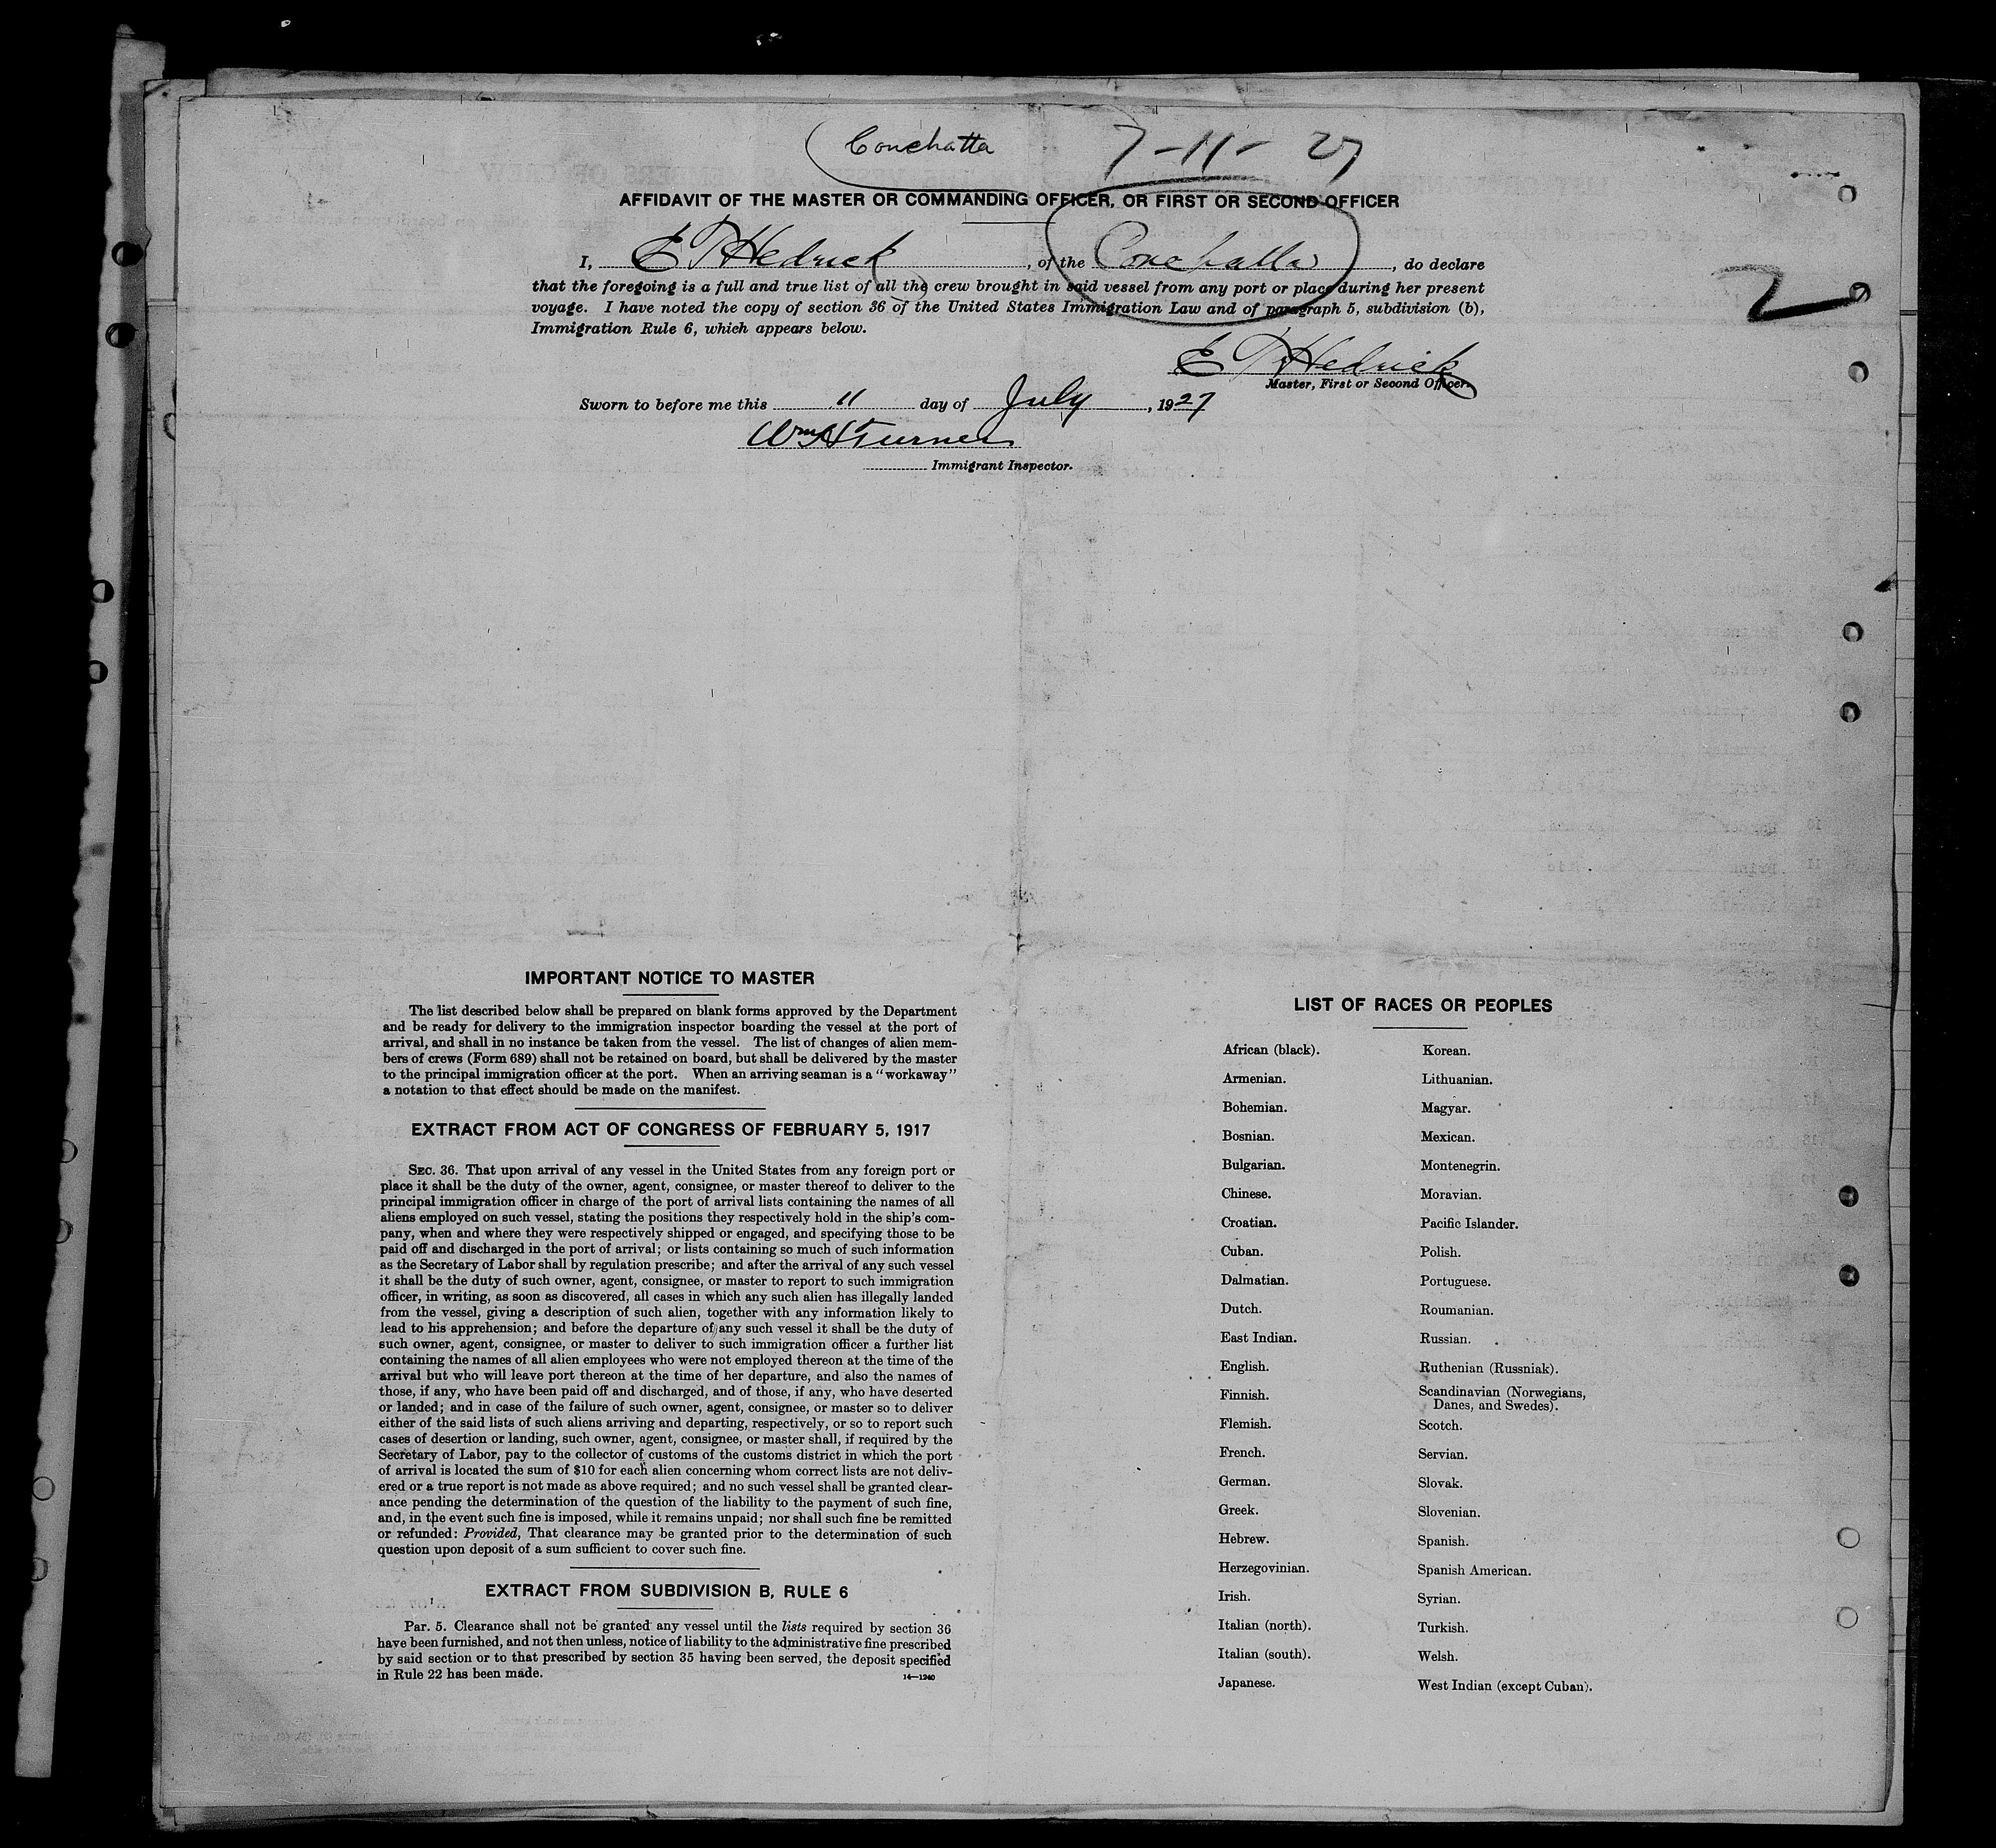 Conehatta 7-11-27
AFFIDAVIT OF THE MASTER OR COMMANDING OFFICER, OR FIRST OR SECOND OFFICER
I, E T Hedrick, of the Conehatta, do declare
that the foregoing is a full and true list of all the crew brought in said vessel from any port or place during her present
voyage. I have noted the copy of section 36 of the United States Immigration Law and of paragraph 5, subdivision (b),
Immigration Rule 6, which appears below.
2
E T Hedrick
Master, First or Second Officer.
Sworn to before me this 11 day of July, 1927
Wm H Turner
Immigrant Inspector.
IMPORTANT NOTICE TO MASTER
The list described below shall be prepared on blank forms approved by the Department
and be ready for delivery to the immigration inspector boarding the vessel at the port of
arrival, and shall in no instance be taken from the vessel. The list of changes of alien mem-
bers of crews (Form 689) shall not be retained on board, but shall be delivered by the master
to the principal immigration officer at the port. When an arriving seaman is a "workaway"
a notation to that effect should be made on the manifest.
EXTRACT FROM ACT OF CONGRESS OF FEBRUARY 5, 1917
SEC. 36. That upon arrival of any vessel in the United States from any foreign port or
place it shall be the duty of the owner, agent, consignee, or master thereof to deliver to the
principal immigration officer in charge of the port of arrival lists containing the names of all
aliens employed on such vessel, stating the positions they respectively hold in the ship's com-
pany, when and where they were respectively shipped or engaged, and specifying those to be
paid off and discharged in the port of arrival; or lists containing so much of such information
as the Secretary of Labor shall by regulation prescribe; and after the arrival of any such vessel
it shall be the duty of such owner, agent, consignee, or master to report to such immigration
officer, in writing, as soon as discovered, all cases in which any such alien has illegally landed
from the vessel, giving a description of such alien, together with any information likely to
lead to his apprehension; and before the departure of any such vessel it shall be the duty of
such owner, agent, consignee, or master to deliver to such immigration officer a further list
containing the names of all alien employees who were not employed thereon at the time of the
arrival but who will leave port thereon at the time of her departure, and also the names of
those, if any, who have been paid off and discharged, and of those, if any, who have deserted
or landed; and in case of the failure of such owner, agent, consignee, or master so to deliver
either of the said lists of such aliens arriving and departing, respectively, or so to report such
cases of desertion or landing, such owner, agent, consignee, or master shall, if required by the
Secretary of Labor, pay to the collector of customs of the customs district in which the port
of arrival is located the sum of $10 for each alien concerning whom correct lists are not deliv-
ered or a true report is not made as above required; and no such vessel shall be granted clear-
ance pending the determination of the question of the liability to the payment of such fine,
and, in the event such fine is imposed, while it remains unpaid; nor shall such fine be remitted
or refunded: Provided, That clearance may be granted prior to the determination of such
question upon deposit of a sum sufficient to cover such fine.
EXTRACT FROM SUBDIVISION B, RULE 6
Par. 5. Clearance shall not be granted any vessel until the lists required by section 36
have been furnished, and not then unless, notice of liability to the administrative fine prescribed
by said section or to that prescribed by section 35 having been served, the deposit specified
in Rule 22 has been made.
14—1240
LIST OF RACES OR PEOPLES
African (black).
Armenian.
Bohemian.
Bosnian.
Bulgarian.
Chinese.
Croatian.
Cuban.
Dalmatian.
Dutch.
East Indian.
English.
Finnish.
Flemish.
French.
German.
Greek.
Hebrew.
Herzegovinian.
Irish.
Italian (north).
Italian (south).
Japanese.
Korean.
Lithuanian.
Magyar.
Mexican.
Montenegrin.
Moravian.
Pacific Islander.
Polish.
Portuguese.
Roumanian.
Russian.
Ruthenian (Russniak).
Scandinavian (Norwegians,
Danes, and Swedes).
Scotch.
Servian.
Slovak.
Slovenian.
Spanish.
Spanish American.
Syrian.
Turkish.
Welsh.
West Indian (except Cuban).